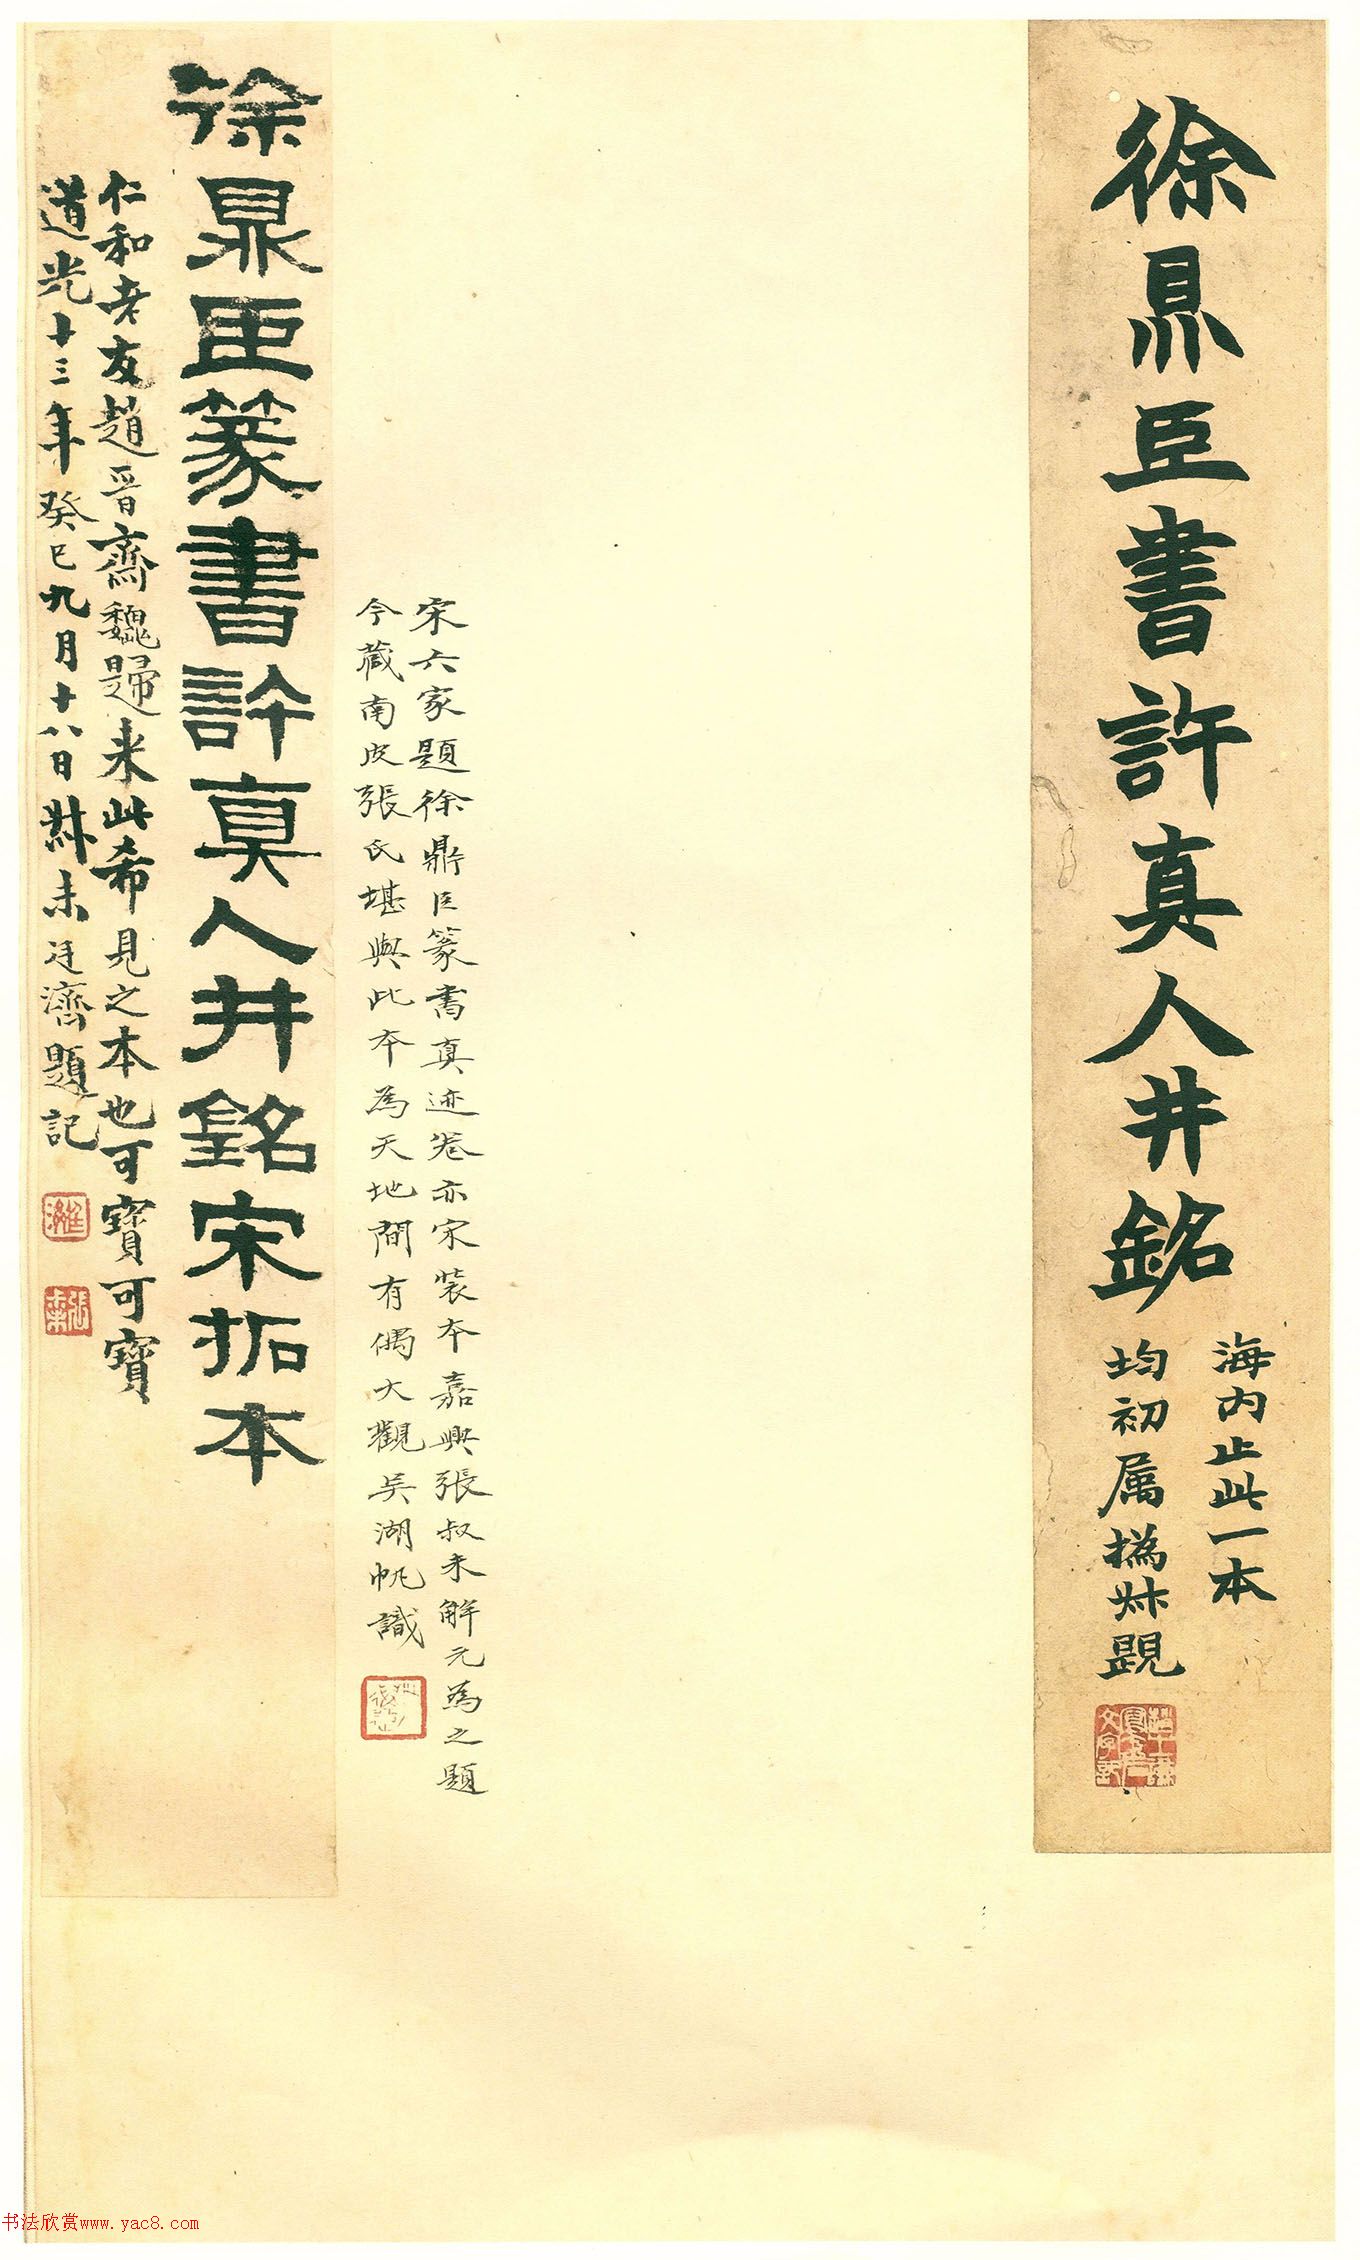 徐鼎臣書許真人井銘
海内止此一本
均初属撝叔題
宋六家題徐鼎臣篆書真迹卷亦宋裝本嘉興張叔未解元為之題
今藏南皮張氏堪與此本為天地間有偶大觀吴湖帆識
徐鼎臣篆書許真人井銘宋拓本
仁和老友趙晉齋魏歸来此希見之本也可寶可寶
道光十三年癸巳九月十八日叔未廷濟題記
书法欣赏www.yac8.com